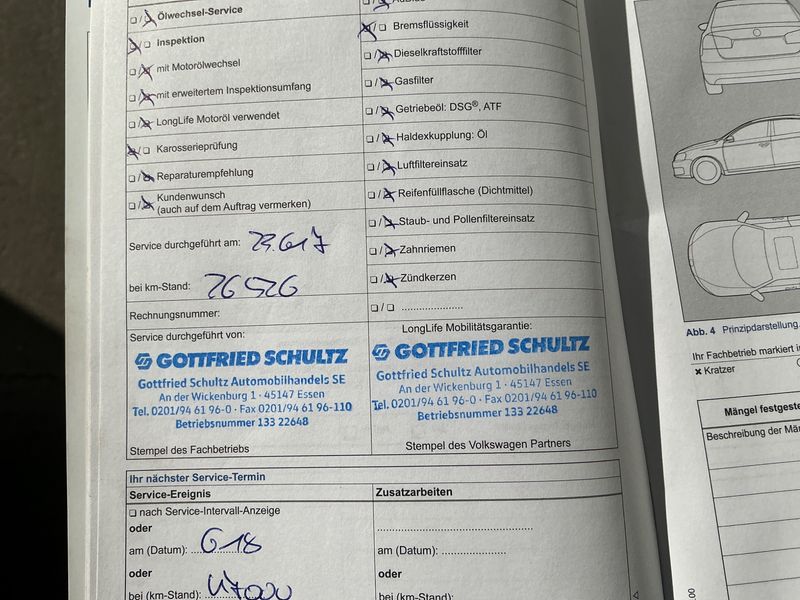 ❏ / ❏ Ölwechsel-Service
❏ / ❏ Inspektion
❏ / ❏ mit Motorölwechsel
❏ / ❏ mit erweitertem Inspektionsumfang
❏ / ❏ LongLife Motoröl verwendet
❏ / ❏ Karosserieprüfung
❏ / ❏ Reparaturempfehlung
❏ / ❏ Kundenwunsch
(auch auf dem Auftrag vermerken)
Service durchgeführt am: 23.6.17
bei km-Stand: 26526
Rechnungsnummer:
❏ / ❏ Bremsflüssigkeit
❏ / ❏ Dieselkraftstofffilter
❏ / ❏ Gasfilter
❏ / ❏ Getriebeöl: DSG®, ATF
❏ / ❏ Haldexkupplung: Öl
❏ / ❏ Luftfiltereinsatz
❏ / ❏ Reifenfüllflasche (Dichtmittel)
❏ / ❏ Staub- und Pollenfiltereinsatz
❏ / ❏ Zahnriemen
❏ / ❏ Zündkerzen
❏ / ❏ ......................
Service durchgeführt von:
GOTTFRIED SCHULTZ
Gottfried Schultz Automobilhandels SE
An der Wickenburg 1 · 45147 Essen
Tel. 0201/94 61 96-0 · Fax 0201/94 61 96-110
Betriebsnummer 133 22648
Stempel des Fachbetriebs
LongLife Mobilitätsgarantie:
GOTTFRIED SCHULTZ
Gottfried Schultz Automobilhandels SE
An der Wickenburg 1 · 45147 Essen
Tel. 0201/94 61 96-0 · Fax 0201/94 61 96-110
Betriebsnummer 133 22648
Stempel des Volkswagen Partners
Ihr nächster Service-Termin
Service-Ereignis
❏ nach Service-Intervall-Anzeige
oder
am (Datum): 6.18
oder
bei (km-Stand):
Zusatzarbeiten
am (Datum): ......................
oder
bei (km-Stand):
Abb. 4 Prinzipdarstellung.
Ihr Fachbetrieb markiert
× Kratzer
Mängel festgeste
Beschreibung der Män